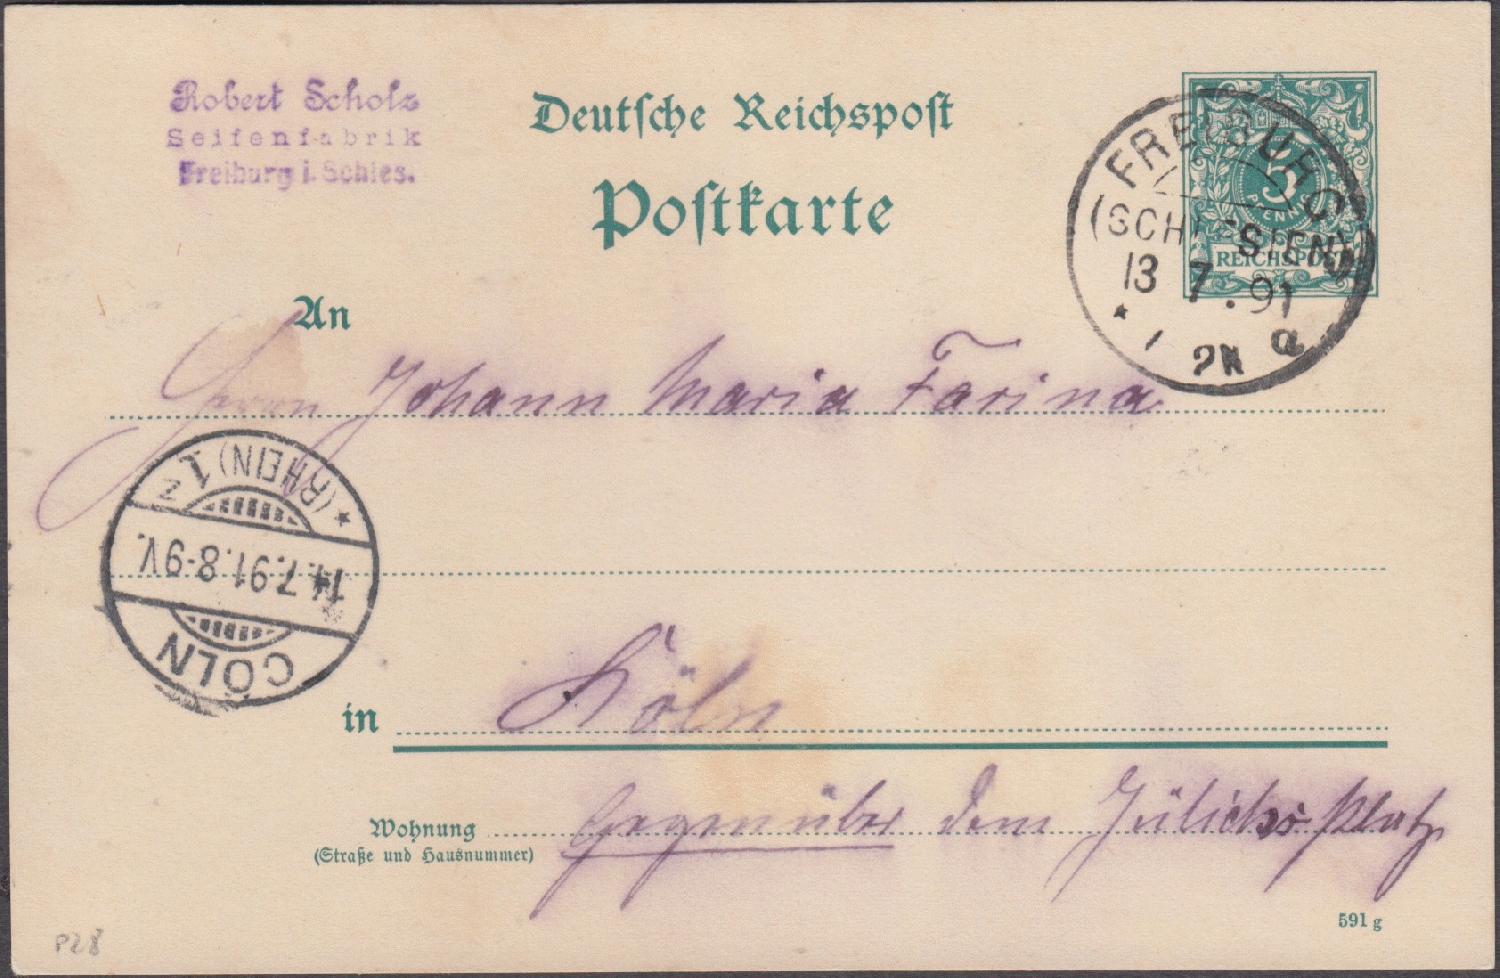 Robert Scholz
Seifenfabrik
Freiburg i. Schles.
Deutsche Reichspost
Postkarte
5
PFENNIG
REICHSPOST
FREIBURG
(SCHLESIEN)
13 7. 91
* 1 2N a
An
Herrn Johann Maria Farina
CÖLN
14.7.91.8-9V.
* (RHEIN) 1 z
in Köln
Wohnung Gegenüber dem Jülichs Platz
(Straße und Hausnummer)
591 g
P28